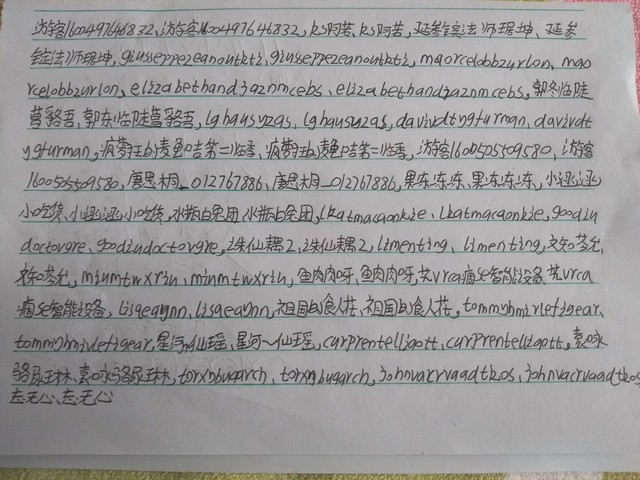 游客1600497646832,游客1600497646832,ks阿苦、ks阿苦,延参法师琨坤、延参
法师琨坤,giusseppezeanoutkti,giusseppezeanoutkti,maorcelobbzurlon,mao
rcelobbzurlon,elizabethandjaznmcebs、elizabethandjaznmcebs,郭冬临陡
营骆吾、郭冬临陡营骆吾,lghausyzas,lghausyzas,davivdtygturman,davivdt
ygturman,疯萝王的麦鱼口吉第二临季、疯萝王的麦鱼口吉第二临季,游客1600505509580、游客
1600505509580,唐思木月_012767886,唐思木月_012767886,果冻冻冻、果冻冻冻,小逃逃
小吃货、小逃逃小吃货,水瓶白朵团、水瓶白朵团,lkatmacaonkie、lkatmacaonkie,goodiu
doctovgre、goodiudoctovgre,诛仙耦2、诛仙耦2,limenting、limenting,文知苓允
、文知苓允,miumtwxriu,miumtwxriu,鱼肉肉呀、鱼肉肉呀,艾vrca痛先智能设备、艾vrca
痛先智能设备,lisaeaynn,lisaeaynn,祖国的食人花、祖国的食人花,tommyhmirlefigear,
tommyhmirlefigear,星河~仙瑶、星河~仙瑶,curprentelligott,curprentelligott,袁咏
骆尿王林、袁咏骆尿王林,torxnbugarch、torxnbugarch,johnvacrvaadtkos,johnvacrvaadtkos
志无心、志无心